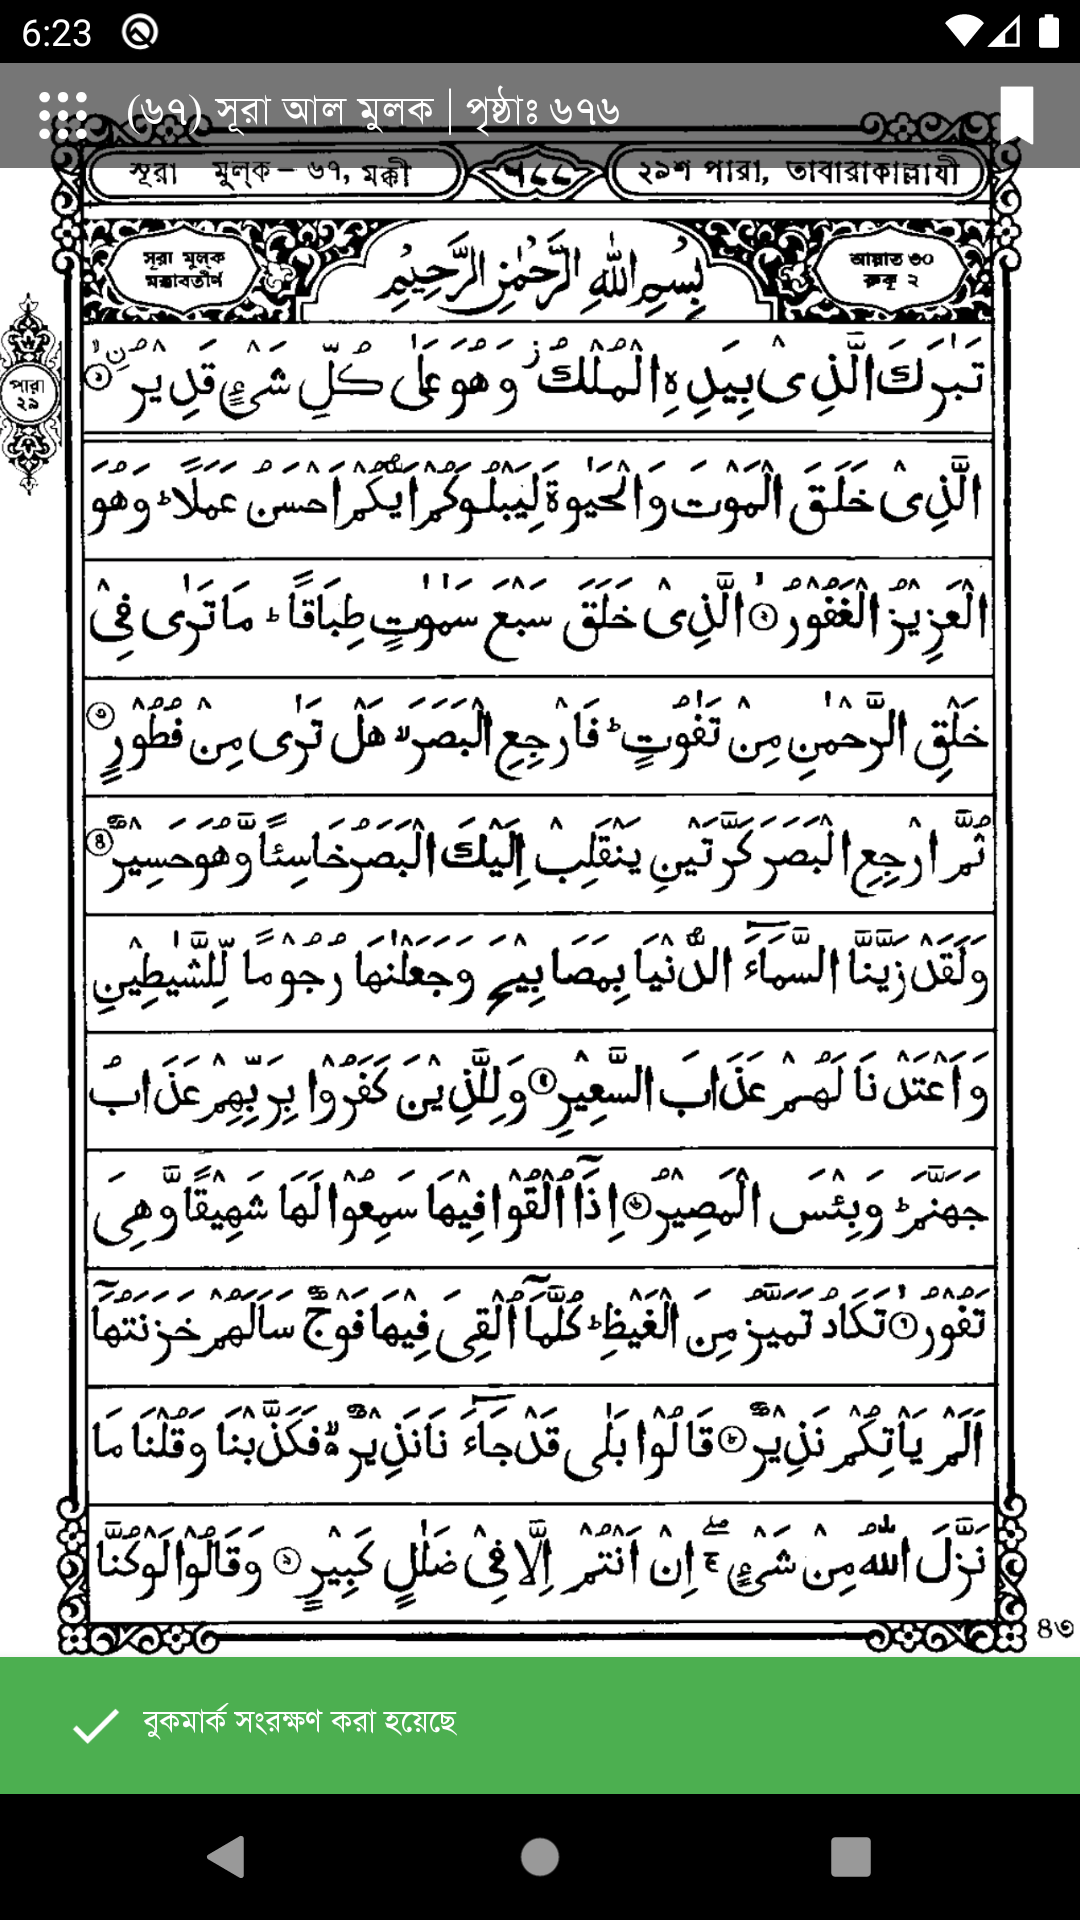 6:23
(৬৭) সূরা আল মুলক | পৃষ্ঠাঃ ৬৭৬
সূরা মুল্‌ক – ৬৭, মক্কী
٦٨٨
২৯শ পারা, তাবারাকাল্লাযী
সূরা মুলক
মক্কাবতীর্ণ
بِسْمِ اللّٰهِ الرَّحْمٰنِ الرَّحِيْمِ
আয়াত ৩০
রুকূ ২
পারা
২৯
تَبٰرَكَ الَّذِىْ بِيَدِهِ الْمُلْكُ ز وَهُوَ عَلٰى كُلِّ شَىْءٍ قَدِيْرُ ۙنِ ১
الَّذِىْ خَلَقَ الْمَوْتَ وَالْحَيٰوةَ لِيَبْلُوَكُمْ اَيُّكُمْ اَحْسَنُ عَمَلًا ؕ وَهُوَ
الْعَزِيْزُ الْغَفُوْرُ ۙ ২ الَّذِىْ خَلَقَ سَبْعَ سَمٰوٰتٍ طِبَاقًا ؕ مَا تَرٰى فِىْ
خَلْقِ الرَّحْمٰنِ مِنْ تَفٰوُتٍ ؕ فَارْجِعِ الْبَصَرَ ۙ هَلْ تَرٰى مِنْ فُطُوْرٍ ৩
ثُمَّ ارْجِعِ الْبَصَرَ كَرَّتَيْنِ يَنْقَلِبْ اِلَيْكَ الْبَصَرُ خَاسِئًا وَّهُوَ حَسِيْرٌ ৪
وَلَقَدْ زَيَّنَّا السَّمَآءَ الدُّنْيَا بِمَصَابِيْحَ وَجَعَلْنٰهَا رُجُوْمًا لِّلشَّيٰطِيْنِ
وَاَعْتَدْنَا لَهُمْ عَذَابَ السَّعِيْرِ ৫ وَلِلَّذِيْنَ كَفَرُوْا بِرَبِّهِمْ عَذَابُ
جَهَنَّمَ ؕ وَبِئْسَ الْمَصِيْرُ ৬ اِذَآ اُلْقُوْا فِيْهَا سَمِعُوْا لَهَا شَهِيْقًا وَّهِىَ
تَفُوْرُ ۙ ৭ تَكَادُ تَمَيَّزُ مِنَ الْغَيْظِ ؕ كُلَّمَآ اُلْقِىَ فِيْهَا فَوْجٌ سَاَلَهُمْ خَزَنَتُهَآ
اَلَمْ يَاْتِكُمْ نَذِيْرٌ ৮ قَالُوْا بَلٰى قَدْ جَآءَنَا نَذِيْرٌ ۙ۬ فَكَذَّبْنَا وَقُلْنَا مَا
نَزَّلَ اللّٰهُ مِنْ شَىْءٍ ۚۖ اِنْ اَنْتُمْ اِلَّا فِىْ ضَلٰلٍ كَبِيْرٍ ৯ وَقَالُوْا لَوْ كُنَّا
৪৩
বুকমার্ক সংরক্ষণ করা হয়েছে